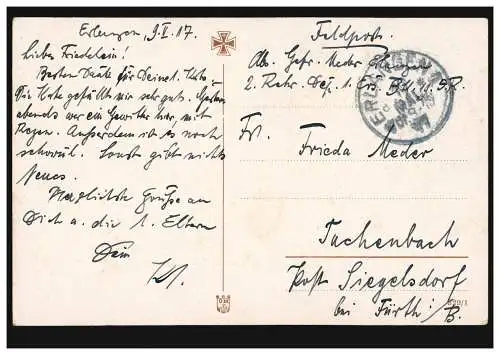 Erlangen, 9.V.17.
Liebes Friedelein!
Besten Dank für Deine l. Karte.
Die Karte gefällt mir sehr gut. Gestern
abends war ein Gewitter hier, mit
Regen. Außerdem ist es noch
schwül. Sonst gibt nichts
Neues.
Herzlichste Grüße an
Dich u. die l. Eltern
Dein
Feldpost.
Abs. Gefr. Meder
2. Rekr.
Frl. Frieda Meder
Tuchenbach
Post Siegelsdorf
bei Fürth i/B.
ERLANGEN